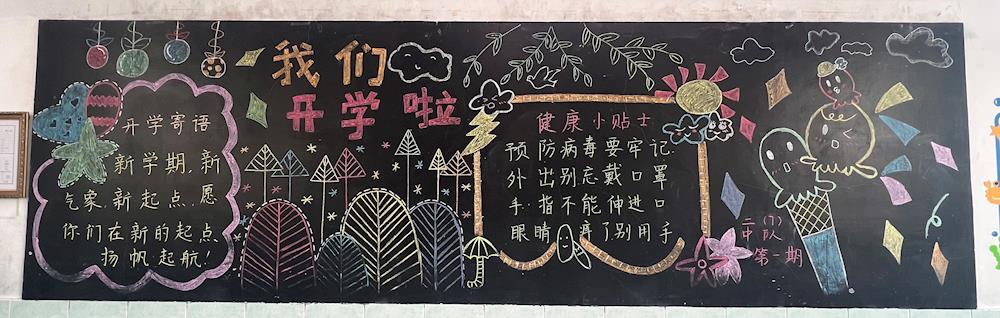 我们
开学啦
开学寄语
新学期,新
气象,新起点,愿
你们在新的起点
扬帆起航!
健康小贴士
预防病毒要牢记
外出别忘戴口罩
手指不能伸进口
眼睛痒了别用手
二(7)
中队
第一期